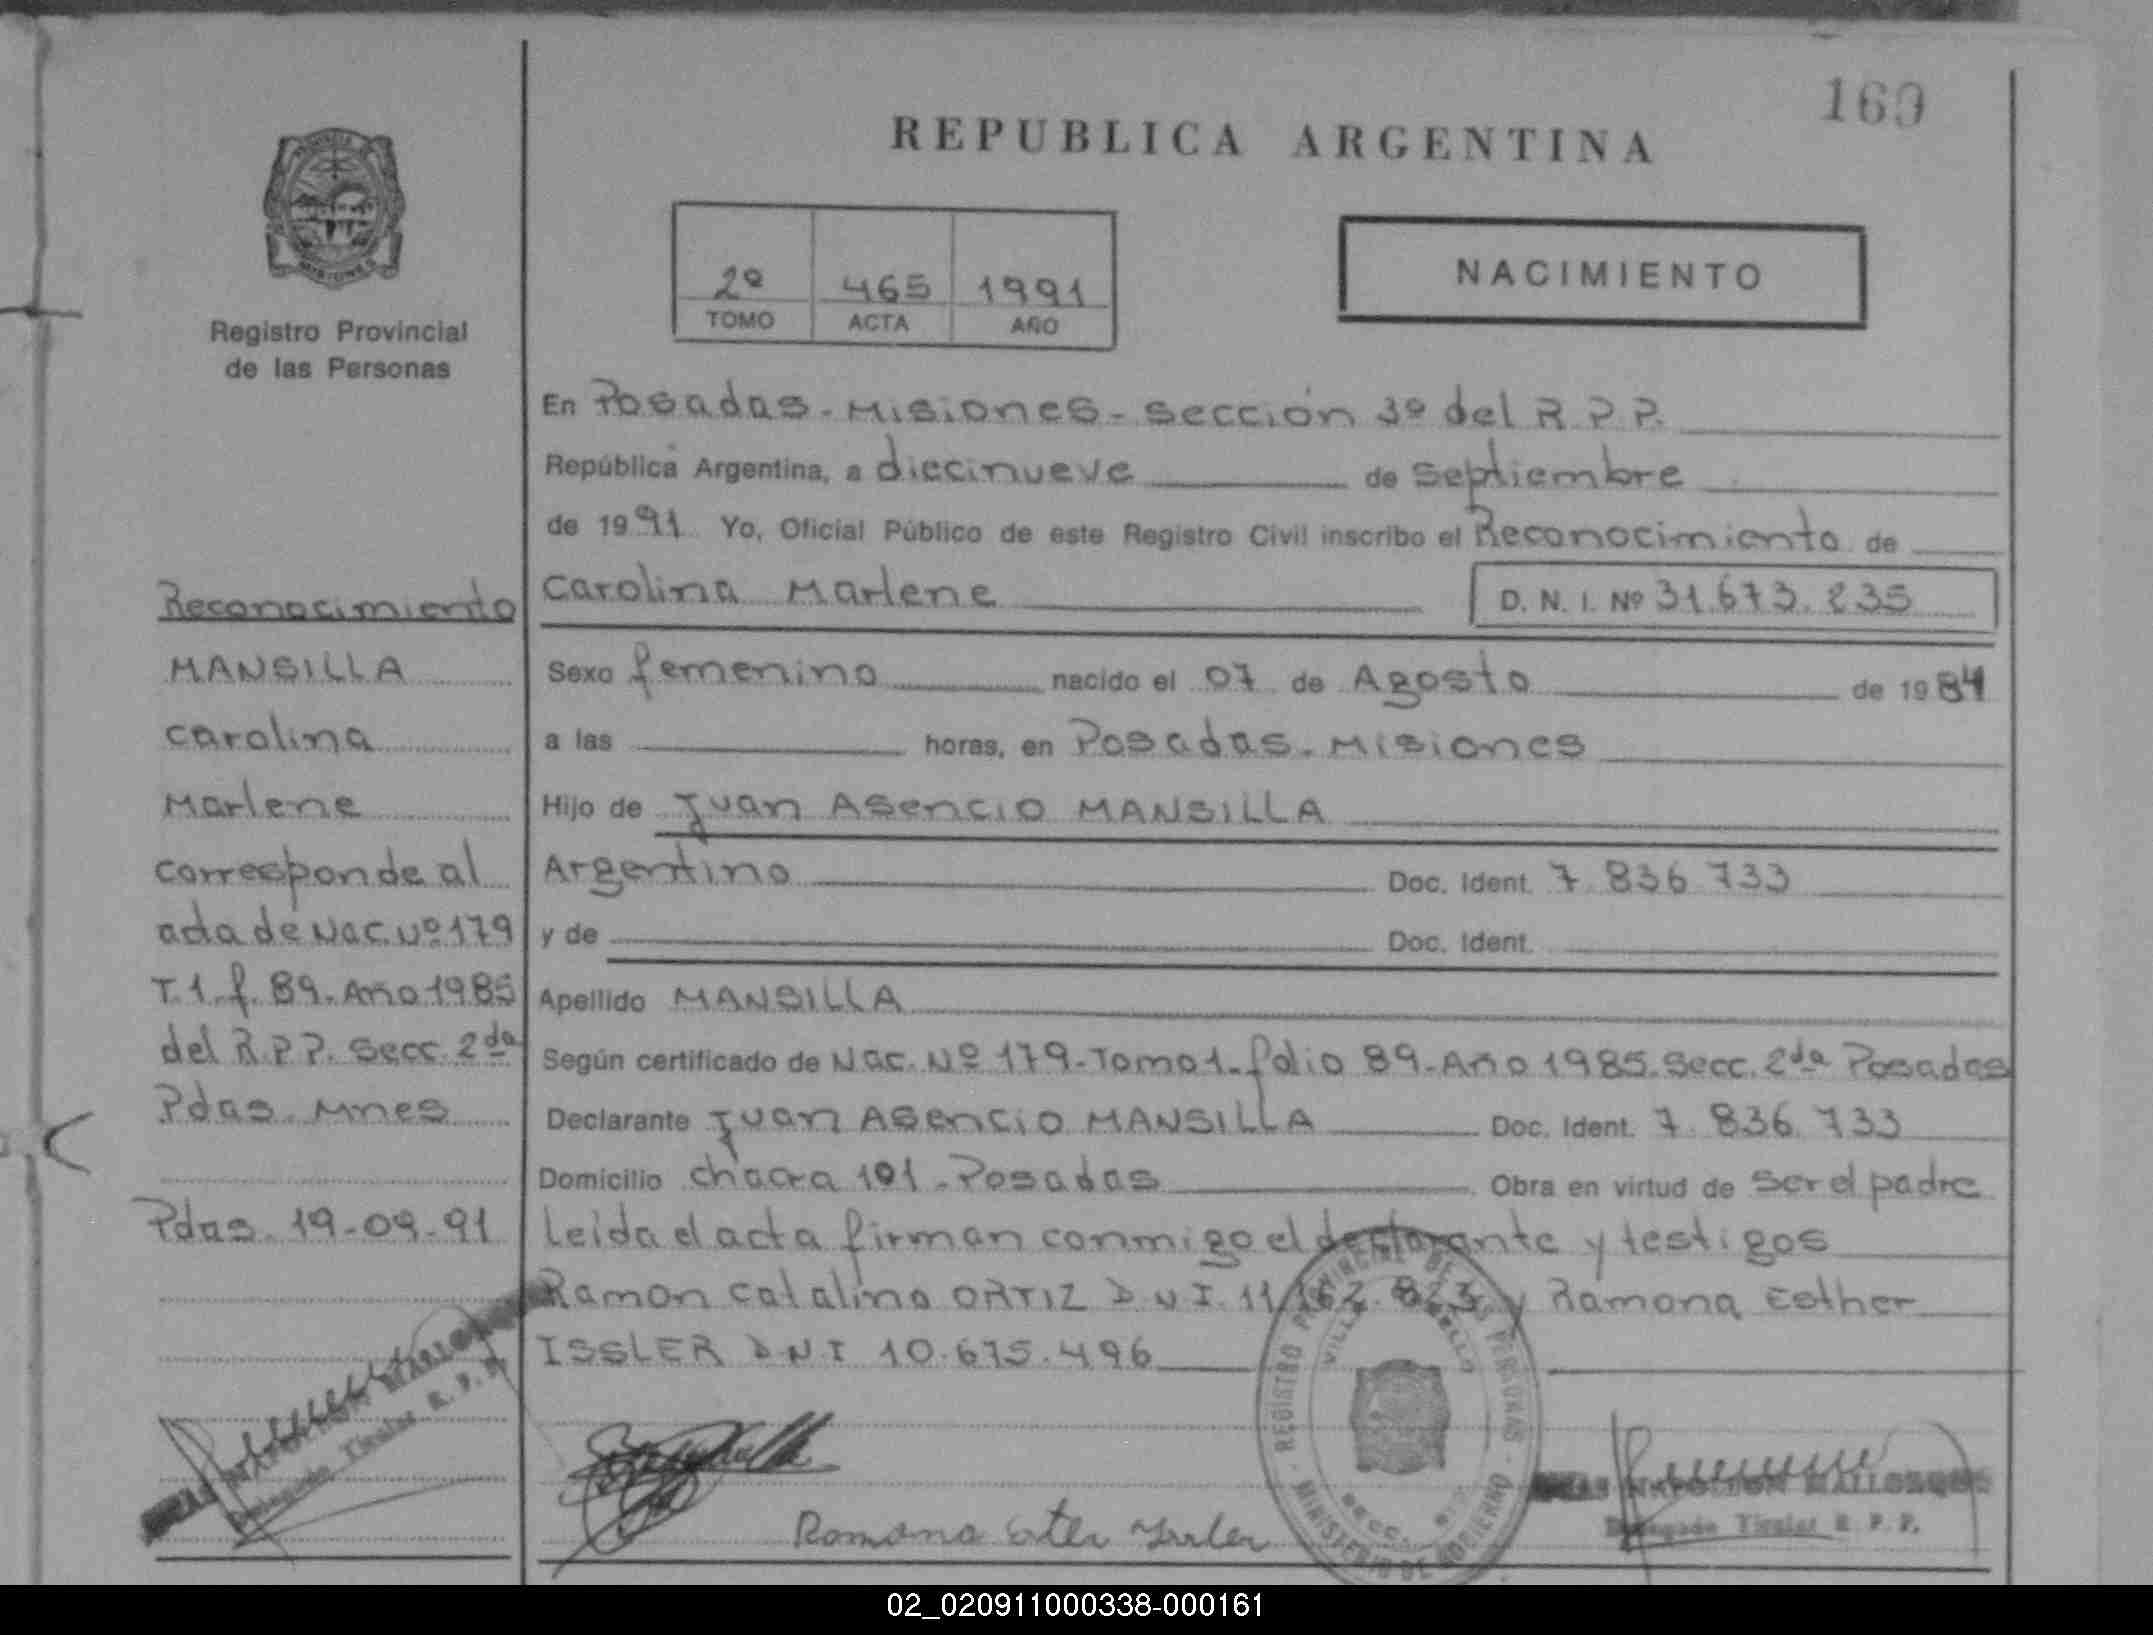 160
REPUBLICA ARGENTINA
2º 465 1991
TOMO ACTA AÑO
NACIMIENTO
MISIONES
Registro Provincial
de las Personas
Reconocimiento
MANSILLA
Carolina
Marlene
corresponde al
acta de Nac. Nº 179
T. 1. f. 89. Año 1985
del R.P.P. Secc. 2da
Pdas. Mnes
Pdas. 19-09-91
Delegado Titular R. P. P.
En Posadas - Misiones - sección 3º del R.P.P.
República Argentina, a diecinueve de septiembre
de 1991 Yo, Oficial Público de este Registro Civil inscribo el Reconocimiento de
Carolina Marlene D. N. I. Nº 31.673.235
Sexo femenino nacido el 07 de Agosto de 1984
a las horas, en Posadas - Misiones
Hijo de Juan Asencio MANSILLA
Argentino Doc. Ident. 7.836.733
y de Doc. Ident.
Apellido MANSILLA
Según certificado de Nac. Nº 179-Tomo 1-folio 89-Año 1985. Secc. 2da Posadas
Declarante Juan Asencio MANSILLA Doc. Ident. 7.836.733
Domicilio chacra 101 - Posadas Obra en virtud de ser el padre
Leida el acta firman conmigo el declarante y testigos
Ramon Catalino ORTIZ D N I. 11.162.823 y Ramona Esther
ISSLER D.N.I 10.675.496
REGISTRO PROVINCIAL DE LAS PERSONAS
MINISTERIO DE GOBIERNO
Ramona Ester Issler
NAPOLEON
Delegado Titular R. P. P.
02_020911000338-000161